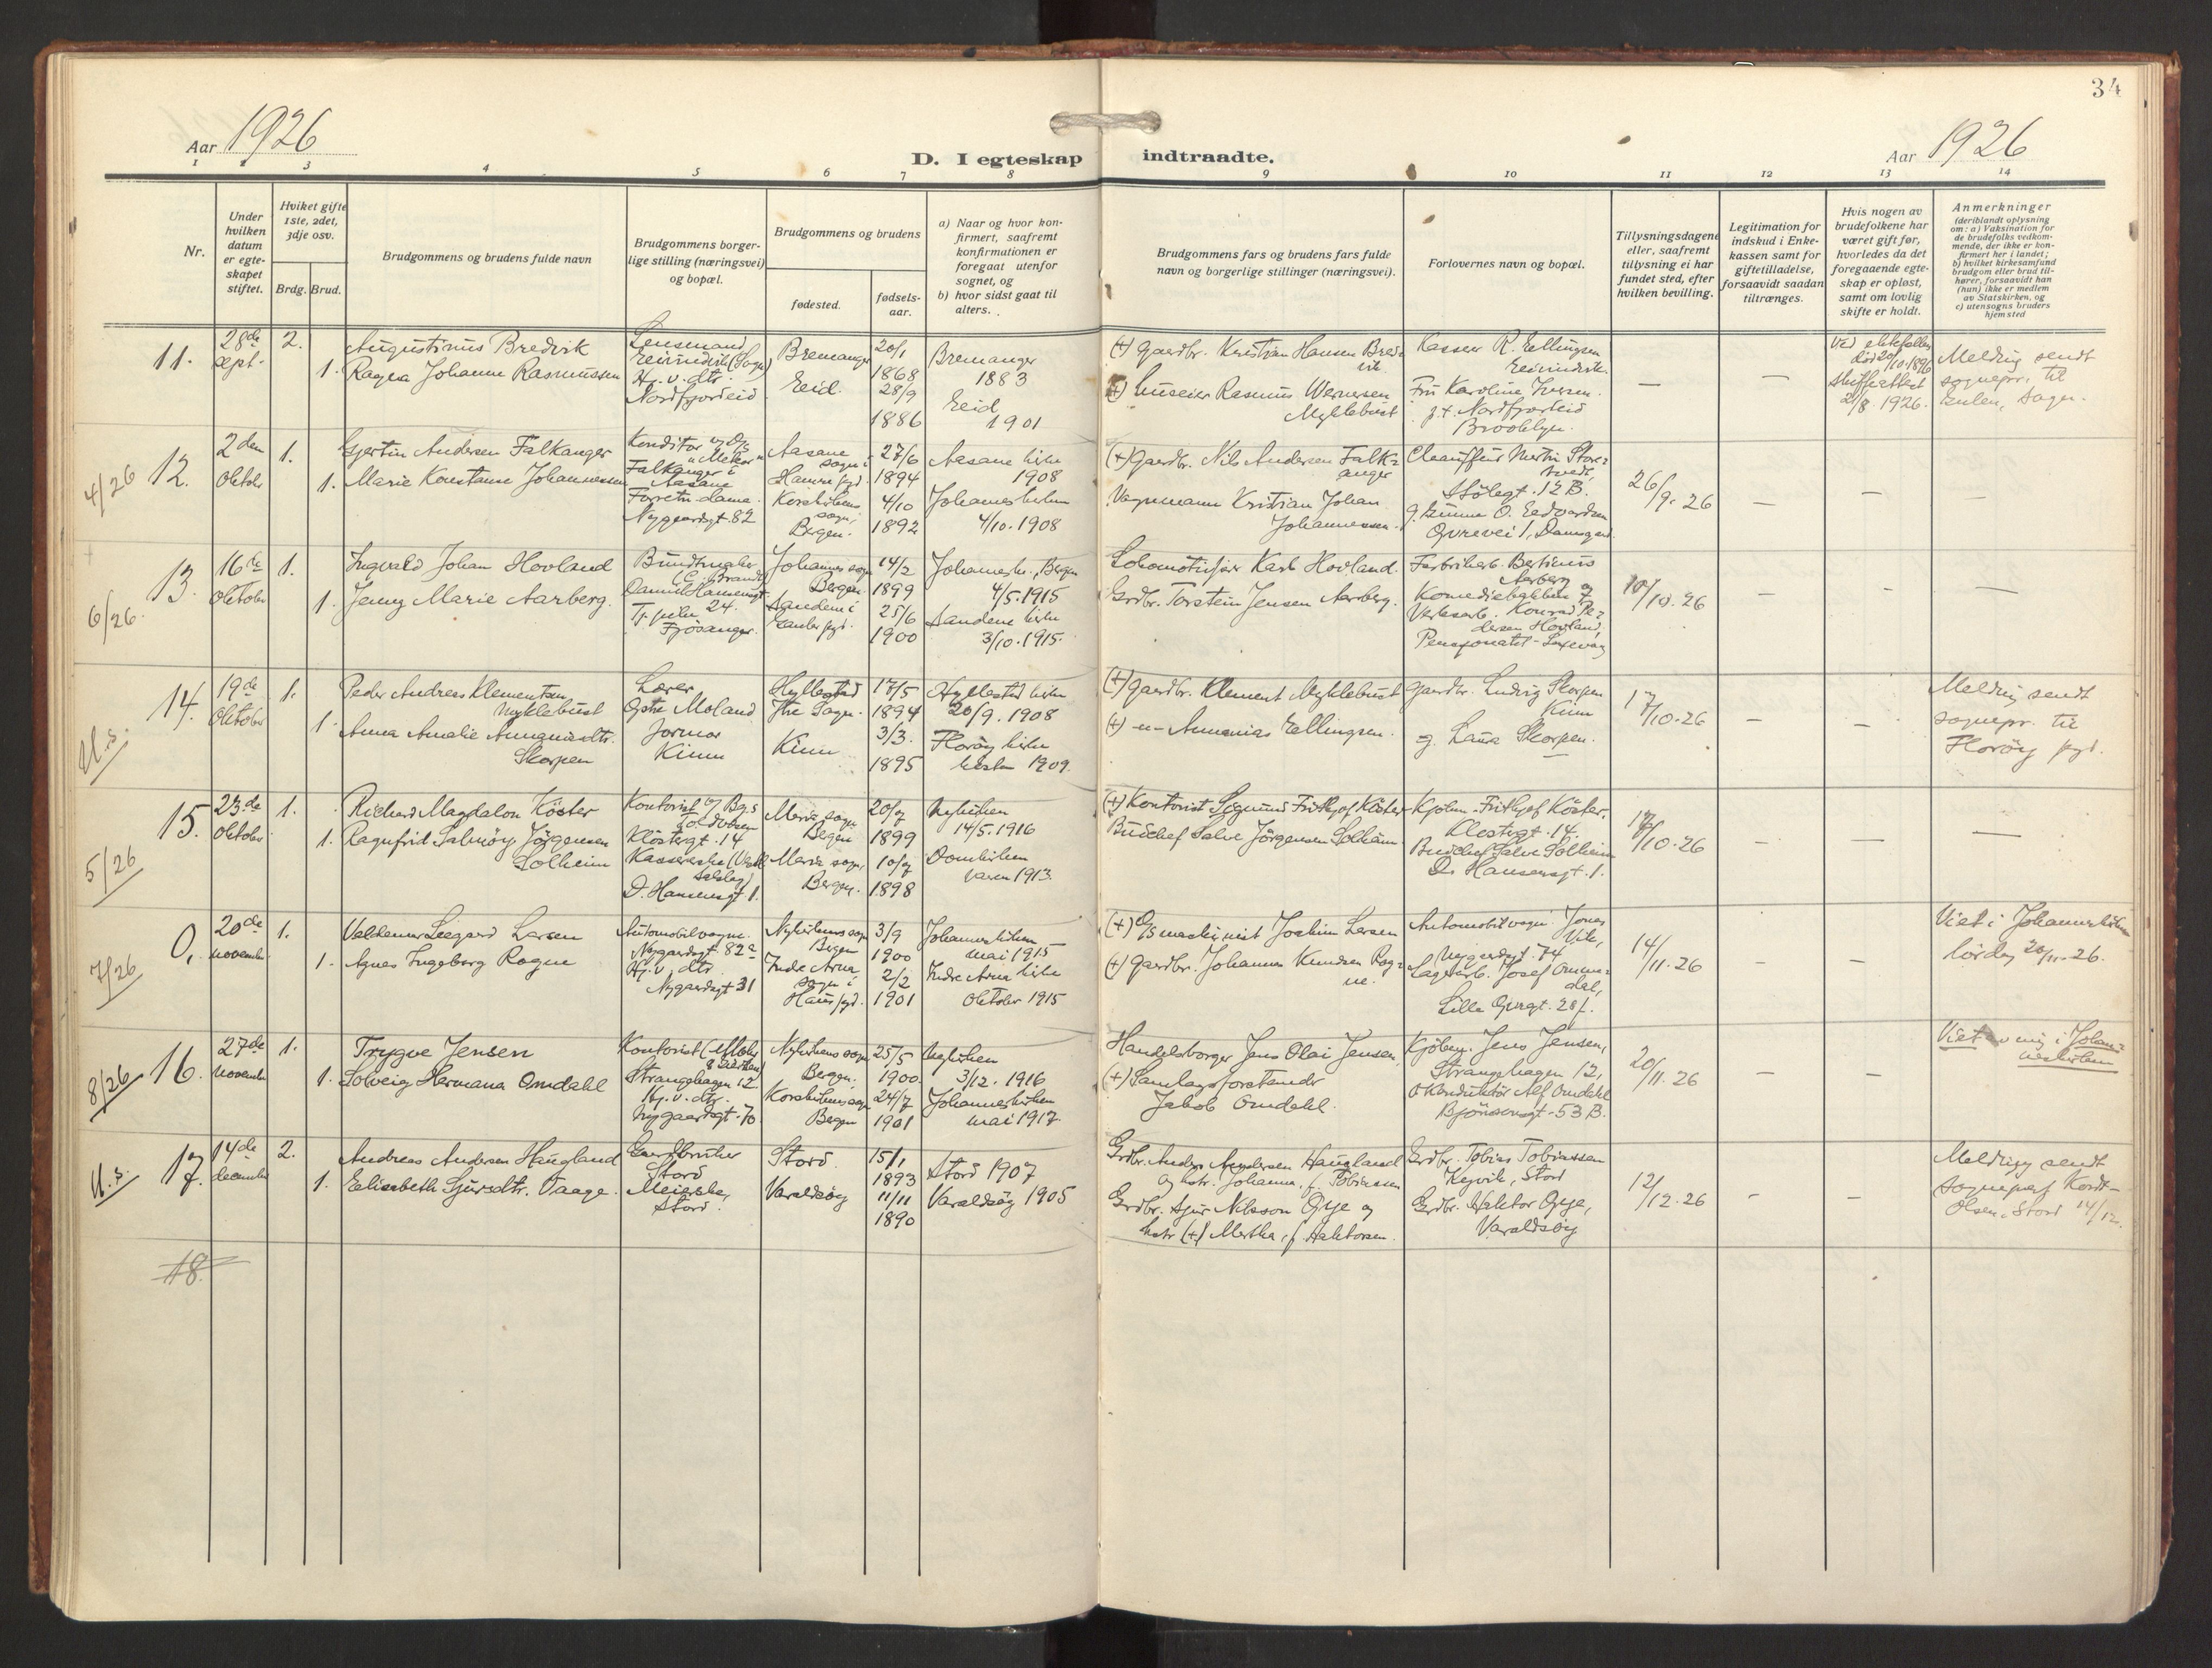 34
Aar 1926
D. I egteskap indtraadte.
Aar 1926
1 2 3 4 5 6 7 8 9 10 11 12 13 14
Nr.
Under
hvilken
datum
er egte-
skapet
stiftet.
Hviket gifte
1ste, 2det,
3dje osv.
Brdg. Brud.
Brudgommens og brudens fulde navn
Brudgommens borger-
lige stilling (næringsvei)
og bopæl.
Brudgommens og brudens
fødested.
fødsels-
aar.
a) Naar og hvor kon-
firmert, saafremt
konfirmationen er
foregaat utenfor
sognet, og
b) hvor sidst gaat til
alters.
Brudgommens fars og brudens fars fulde
navn og borgerlige stillinger (næringsvei).
Forlovernes navn og bopæl.
Tillysningsdagene
eller, saafremt
tillysning ei har
fundet sted, efter
hvilken bevilling.
Legitimation for
indskud i Enke-
kassen samt for
giftetilladelse,
forsaavidt saadan
tiltrænges.
Hvis nogen av
brudefolkene har
været gift før,
hvorledes da det
foregaaende egte-
skap er opløst,
samt om lovlig
skifte er holdt.
Anmerkninger
(deriblandt oplysning
om: a) Vaksination for
de brudefolks vedkom-
mende, der ikke er kon-
firmert her i landet;
b) hvilket kirkesamfund
brudgom eller brud til-
hører, forsaavidt han
(hun) ikke er medlem
av Statskirken, og
c) utensogns bruders
hjemsted
11.
28de
sept.
2.
1.
Augustinus Bredvik
Ragna Johanne Rasmussen
Lensmand
Eivindvik (Sogn)
Hj. v. dtr.
Nordfjordeid
Bremanger
Eid.
20/1
1868
28/9
1886
Bremanger
1883
Eid
1901
(+) Gaardbr. Kristian Hansen Bred-
vik
(+) Huseier Rasmus Wernersen
Myklebust
Kasserer R. Ellingsen
Eivindvik
Fru Karoline Iversen
z.t. Nordfjordeid
Brooklyn.
—
—
Ved ektefælles
død 20/10 1896
Skifteattest
21/8. 1926.
Melding sendt
sognepr. til
Gulen, Sogn.
4/26
12.
2den
Oktober
1.
1.
Gjertin Andersen Falkanger
Marie Konstanse Johannessen
Konditor v/ Dp
"Meteor"
Falkanger i
Aasane
Forretn. dame.
Nygaardsgt. 82
Aasane
sogn i
Hamre pgd.
Korskirkens
sogn,
Bergen.
27/6
1894
4/10
1892
Aasane kirke
1908
Johanneskirken
4/10. 1908
(+) Gaardbr. Nils Andersen Falk-
anger
Vognmann Kristian Johan
Johannessen.
Chauffeur Martin Store-
tvedt,
12 B.
g. Gunna O. Edvardsen
Øvrevei 1, Damsgaard.
26/9. 26
—
—
—
6/26.
13.
16de
Oktober
1.
1.
Ingvald Johan Hovland
Jenny Marie Aarberg.
Buntmaker
(C. Brandt)
Daniel Hansensgt.
24.
Tj. pike
Fjøsanger.
Johannes sogn
Bergen
Sandene i
Gaular pgd.
14/2
1899
25/6
1900
Johanneskr., Bergen
4/5. 1915
Sandene kirke
3/10. 1915.
Lokomotivfører Karl Hovland.
Grdbr. Torstein Jensen Aarberg.
Fabrikarb. Bertinus
Aarberg
Komediebakken 9
Verksarb. Konrad Pe-
dersen Hovland,
Pensjonatet - Laksevåg
10/10. 26
—
-
—
U.s.
14.
19de
Oktober
1.
1.
Peder Andreas Klementsen
Myklebust
Anna Amalie Annaniasdtr.
Skorpen
Lærer
Øptre Moland
Jormor
Kinn
Hyllestad
Ytre Sogn.
Kinn
17/5
1894
3/3.
1895
Hyllestad kirke
20/9. 1908
Florøy kirke
høsten 1909.
(+) Gaardbr. Klement Myklebust
(+) -"- Annanias Ellingsen.
Gaardbr. Ludvig Skorpen
Kinn
g. Laura Skorpen.
17/10. 26
—
—
Melding sendt
sognepr. til
Florøy pgd.
5/26
15.
23.de
Oktober
1.
1.
Richard Magdalon Köster
Ragnfrid Salmøy Jörgensen
Solheim
Kontorist v/ Bgs
Toldbosen
Klostergt. 14
Kassererske (
D. Hansensgt 1.
Maria sogn
Bergen
Maria sogn,
Bergen.
20/7
1899
10/7
1898
Nykirken
14/5. 1916
Domkirken
vaaren 1913.
(+) Kontorist Sigmund Fridtjof Köster
Salve Jörgensen Solheim.
Kjøbm. Fridtjof Köster.
Klostergt. 14.
Salve Solheim
D. Hansensgt. 1.
17/10. 26
—
—
—
7/26
0.
20de
november
1.
1.
Valdemar Seegaard Larsen
Agnes Ingeborg Rogne
Automobilvogn.
Nygaardsgt. 82a
Hj. v. dtr.
Nygaardsgt 31
Nykirkens sogn
Bergen
Indre Arna
sogn i
Haus pgd.
3/9
1900
2/2
1901
Johanneskirken
mai 1915
Indre Arna kirke
oktober 1915
(+) Dpsmaskinist Joakim Larsen
(+) Gaardbr. Johannes Knudsen Rog-
ne.
Automobilvogn. Jonas
Vik,
Nygaardsgt. 74
Lagerarb. Josef Omme-
dal,
Lille Øvregt. 28f.
14/11. 26
Viet i Johanneskirken
lørdag 20/11. 26.
8/26
16.
27de
november
1.
1.
Trygve Jensen
Solveig Hermana Omdahl
Kontorist (
Strangehagen 12
Hj. v. dtr.
Nygaardsgt. 70
Nykirkens sogn
Bergen.
Korskirkens sogn
Bergen
25/5
1900.
24/7
1901
Nykirken
3/12. 1916
Johanneskirken
mai 1917.
Handelsborger Jens Olai Jensen
(+) Samlagsforstander
Jakob Omdahl.
Kjøbm. Jens Jensen,
Strangehagen 12,
O.Konduktør Alf Omdahl
Bjørnsonsgt. 53 B.
20/11. 26
—
—
Viet av mig i Johan-
neskirken
U.s.
17.
14de
december
2.
1.
Andreas Andersen Haugland
Elisabeth Sjursdtr. Vaage.
Gaardbruker
Stord
Meierske,
Stord.
Stord.
Varaldsøy
15/1
1893
11/11
1890
Stord 1907
Varaldsøy 1905
Grdbr. Anders Andersen Haugland
og hstr. Johanna, f. Tobiassen
Grdbr. Sjur Nilsson Øye og
hstr (+) Martha, f. Haktorsen.
Grdbr. Tobias Tobiassen
Høyvik, Stord
Grdbr. Haktor Øye,
Varaldsøy
12/12. 26
-
—
Melding sendt
sogneprest Kordt-
Olsen, Stord 14/12.
18.